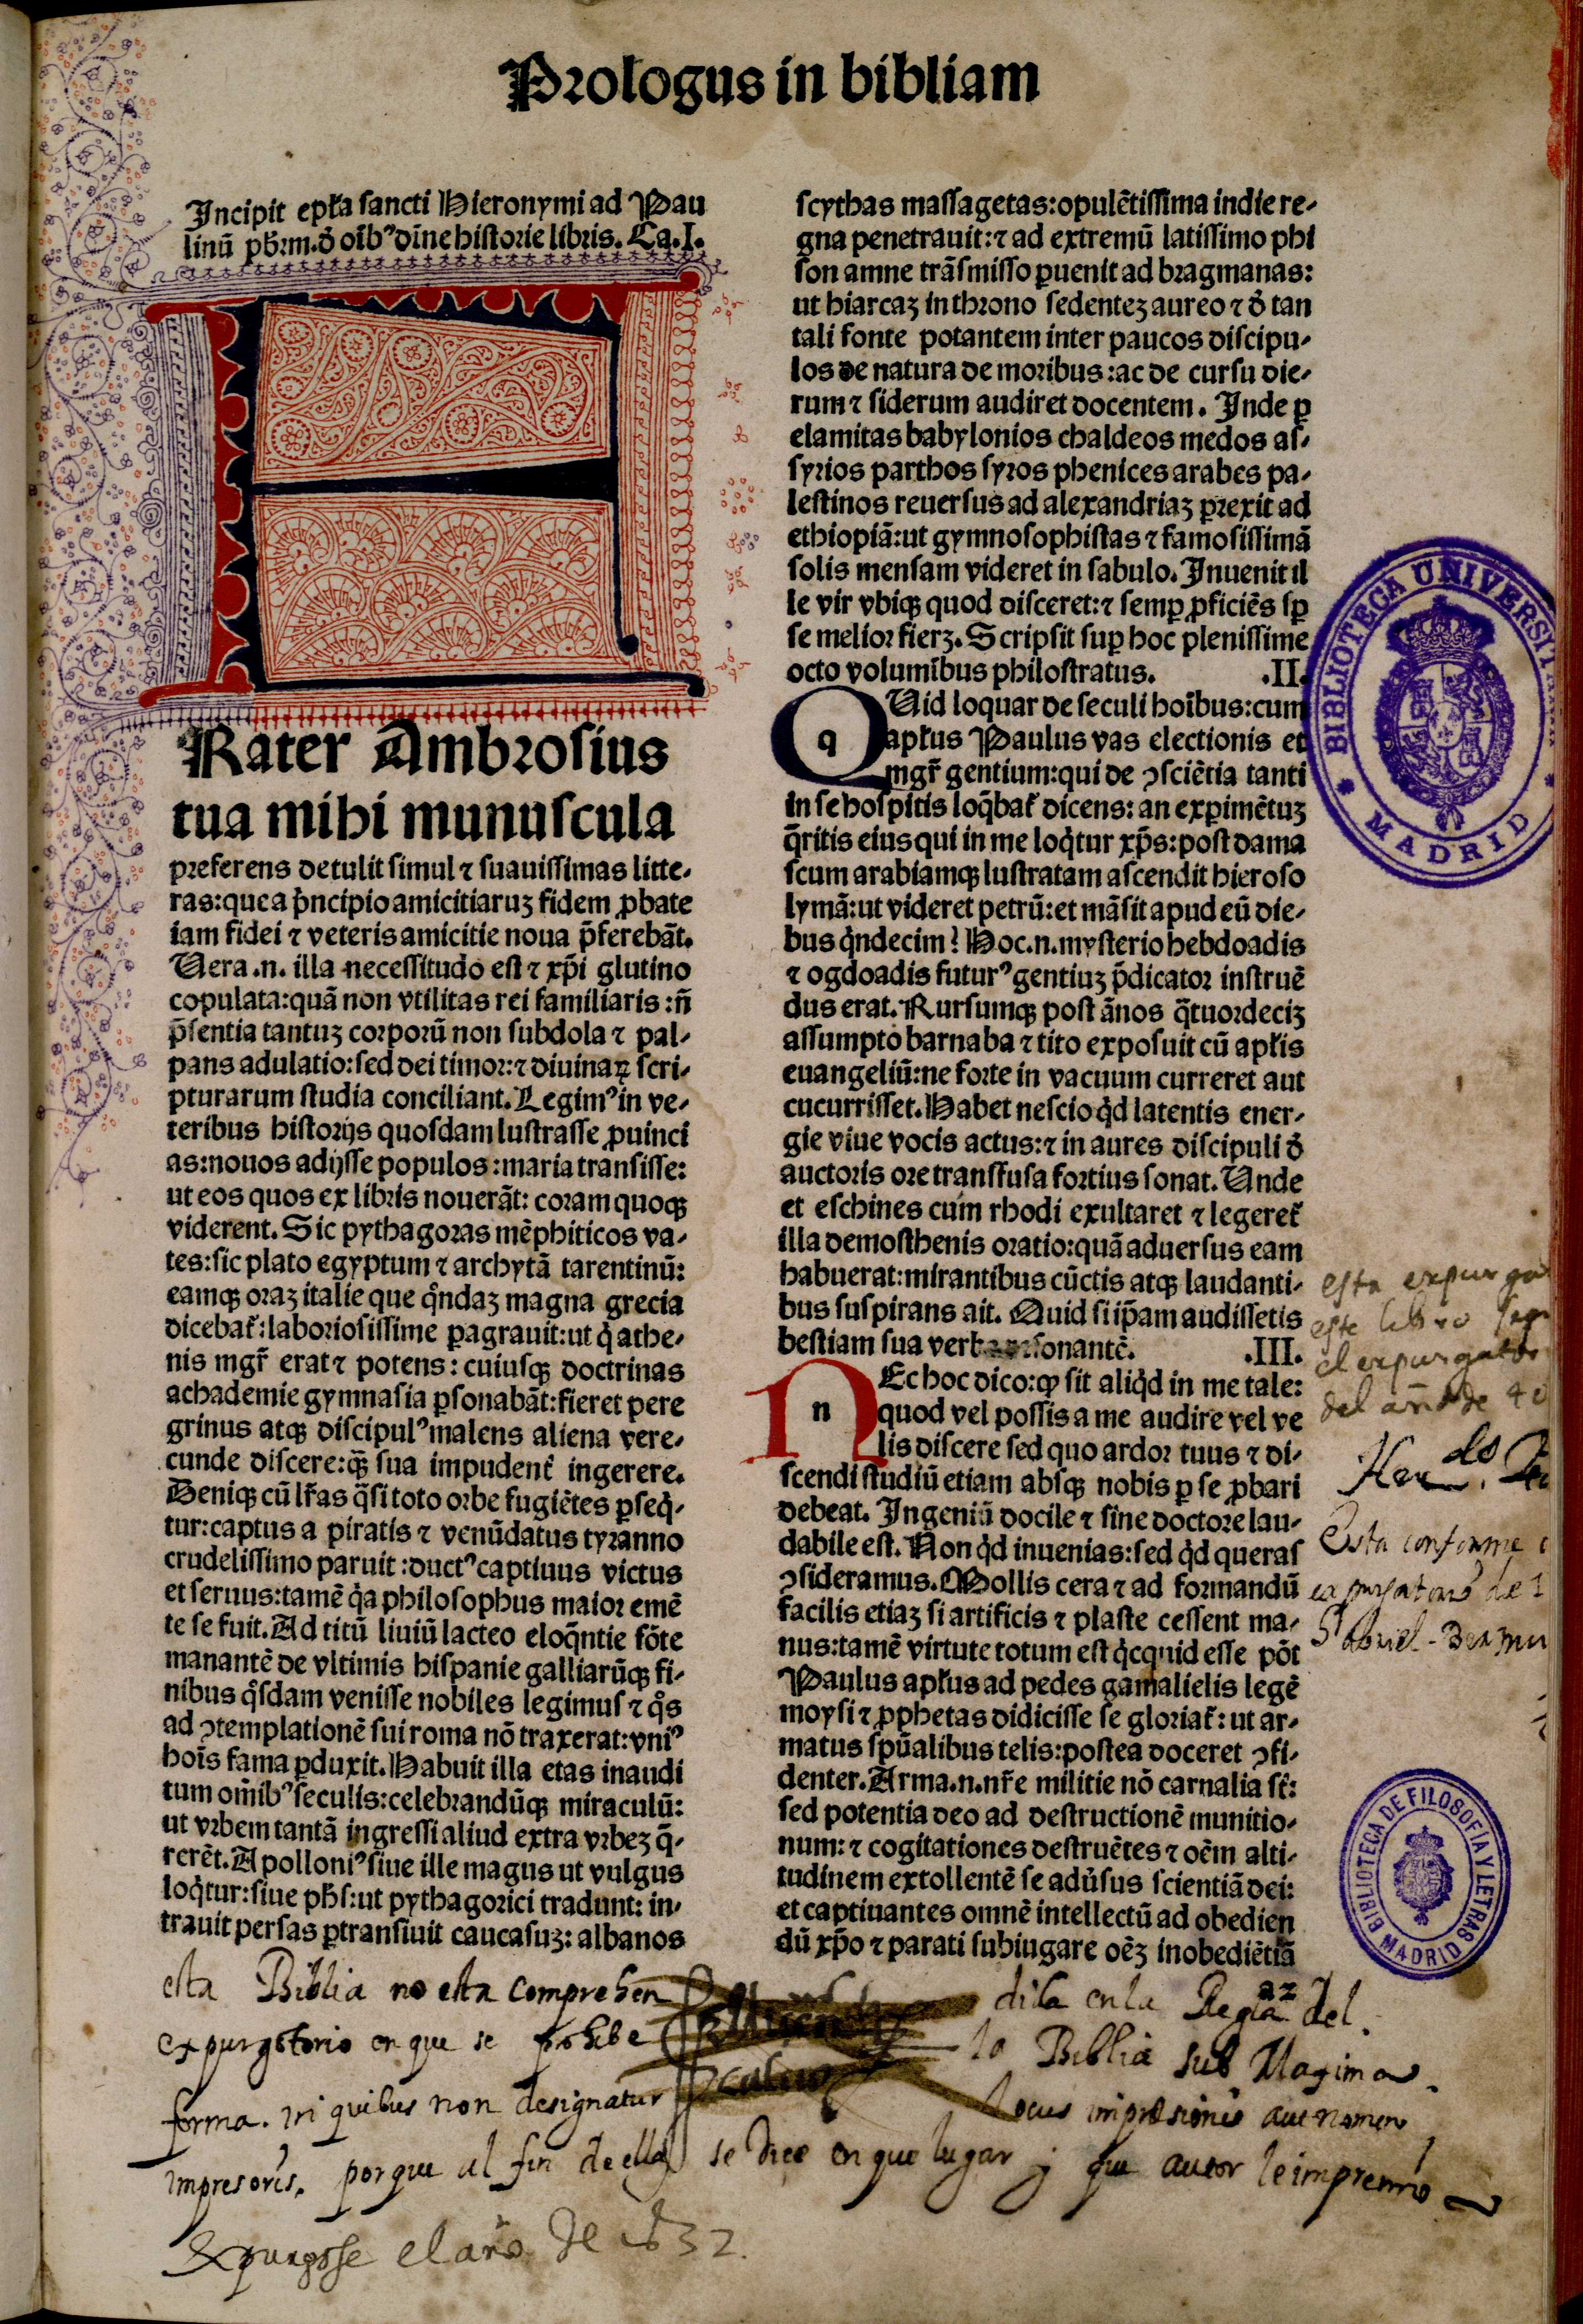 Prologus in bibliam
Incipit epl̃a sancti Hieronymi ad Pau
linũ pb̃rm. ð oĩbꝰ diuĩne historie libris. Ca. I.
FRater Ambrosius
tua mihi munuscula
preferens detulit simul ⁊ suauissimas litte-
ras: que a pͥncipio amicitiaruꝫ fidem ꝓbate
iam fidei ⁊ veteris amicitie noua p̃ferebãt.
Uera .n. illa necessitudo est ⁊ xp̃i glutino
copulata: quã non vtilitas rei familiaris: ñ
p̃sentia tantuꝫ corporũ non subdola ⁊ pal-
pans adulatio: sed dei timor: ⁊ diuinaꝝ scri-
pturarum studia conciliant. Legimꝰ in ve-
teribus historijs quosdam lustrasse ꝓuinci
as: nouos adijsse populos: maria transisse:
ut eos quos ex libris nouerãt: coram quoqꝫ
viderent. Sic pythagoras mẽphiticos va-
tes: sic plato egyptum ⁊ archytã tarentinũ:
eamqꝫ oraꝫ italie que qͦndaꝫ magna grecia
dicebat̃: laboriosissime ꝑagrauit: ut qͥ athe-
nis mgr̃ erat ⁊ potens: cuiusqꝫ doctrinas
achademie gymnasia ꝑsonabãt: fieret pere
grinus atqꝫ discipulꝰ malens aliena vere-
cunde discere: qꝫ̃ sua impudent̃ ingerere.
Deniqꝫ cũ lr̃as q̃si toto orbe fugiẽtes ꝑseqͥ-
tur: captus a piratis ⁊ venũdatus tyranno
crudelissimo paruit: ductꝰ captiuus victus
et seruus: tamẽ qͥa philosophus maior emẽ
te se fuit. Ad titũ liuiũ lacteo eloq̃ntie fõte
manantẽ de vltimis hispanie galliarũqꝫ fi-
nibus qͦsdam venisse nobiles legimus ⁊ qͦs
ad ꝯtemplationẽ sui roma nõ traxerat: vniꝰ
hoĩs fama ꝑduxit. Habuit illa etas inaudi
tum om̃ibꝰ seculis: celebrandũqꝫ miraculũ:
ut vrbem tantã ingressi aliud extra vrbeꝫ q̃-
rerẽt. Apolloniꝰ siue ille magus ut vulgus
loqͥtur: siue ph̃s: ut pythagorici tradunt: in-
trauit persas ꝑtransiuit caucasuꝫ: albanos
scythas massagetas: opulẽtissima indie re-
gna penetrauit: ⁊ ad extremũ latissimo phi
son amne trãsmisso ꝑuenit ad bragmanas:
ut hiarcaꝫ in throno sedenteꝫ aureo ⁊ ð tan
tali fonte potantem inter paucos discipu-
los de natura de moribus: ac de cursu die-
rum ⁊ siderum audiret docentem. Inde ꝑ
elamitas babylonios chaldeos medos as-
syrios parthos syros phenices arabes pa-
lestinos reuersus ad alexandriaꝫ ꝑrexit ad
ethiopiã: ut gymnosophistas ⁊ famosissimã
solis mensam videret in sabulo. Inuenit il
le vir vbiqꝫ quod disceret: ⁊ semꝑ ꝓficiẽs sꝑ
se melior fierꝫ. Scripsit suꝑ hoc plenissime
octo volumĩbus philostratus. .II.
QUid loquar de seculi hoĩbus: cum
q apl̃us Paulus vas electionis et
mgr̃ gentium: qui de ꝯsciẽtia tanti
in se hospitis loq̃bat̃ dicens: an exꝑimẽtuꝫ
q̃ritis eius qui in me loqͥtur xp̃s: post dama
scum arabiamqꝫ lustratam ascendit hieroso
lymã: ut videret petrũ: et mãsit apud eũ die-
bus qͥndecim? Hoc .n. mysterio hebdoadis
⁊ ogdoadis futurꝰ gentiuꝫ p̃dicator instruẽ
dus erat. Rursumqꝫ post ãnos q̃tuordeciꝫ
assumpto barnaba ⁊ tito exposuit cũ apl̃is
euangeliũ: ne forte in vacuum curreret aut
cucurrisset. Habet nescio qͥd latentis ener-
gie viue vocis actus: ⁊ in aures discipuli ð
auctoris ore transfusa fortius sonat. Unde
et eschines cum rhodi exultaret ⁊ legeret̃
illa demosthenis oratio: quã aduersus eam
habuerat: mirantibus cũctis atqꝫ laudanti-
bus suspirans ait. Quid si ip̃am audissetis
bestiam sua verba sonantẽ. .III.
NEc hoc dico: ꝙ sit aliqͥd in me tale:
n quod vel possis a me audire vel ve
lis discere sed quo ardor tuus ⁊ di-
scendi studiũ etiam absqꝫ nobis ꝑ se ꝓbari
debeat. Ingeniũ docile ⁊ sine doctore lau-
dabile est. Non qͥd inuenias: sed qͥd queras
ꝯsideramus. Mollis cera ⁊ ad formandũ
facilis etiaꝫ si artificis ⁊ plaste cessent ma-
nus: tamẽ virtute totum est qͥcquid esse põt
Paulus apl̃us ad pedes gamalielis legẽ
moysi ⁊ ꝓphetas didicisse se gloriat̃: ut ar-
matus spũalibus telis: postea doceret ꝯfi-
denter. Arma .n. nr̃e militie nõ carnalia st̃:
sed potentia deo ad destructionẽ munitio-
num: ⁊ cogitationes destruẽtes ⁊ oẽm alti-
tudinem extollentẽ se aduͥsus scientiã dei:
et captiuantes omnẽ intellectũ ad obedien
dũ xp̃o ⁊ parati subiugare oẽꝫ inobediẽtiã
a2
BIBLIOTECA UNIVERSITARIA
MADRID
esta expurga
este libro seg
el expurgator
del año de 40
Esta conforme
expurgatorio de 1
Gabriel Bermu
BIBLIOTECA DE FILOSOFIA Y LETRAS
MADRID
esta Biblia no esta comprehen dida en la Regla del
expurgatorio en que se prohibe la Biblia sub Maxima
forma. in quibus non designatur locus impresionis aut nomen
impresoris. porque al fin de ella se dice en que lugar y que autor le impremio
Expurgose el año de 1632.